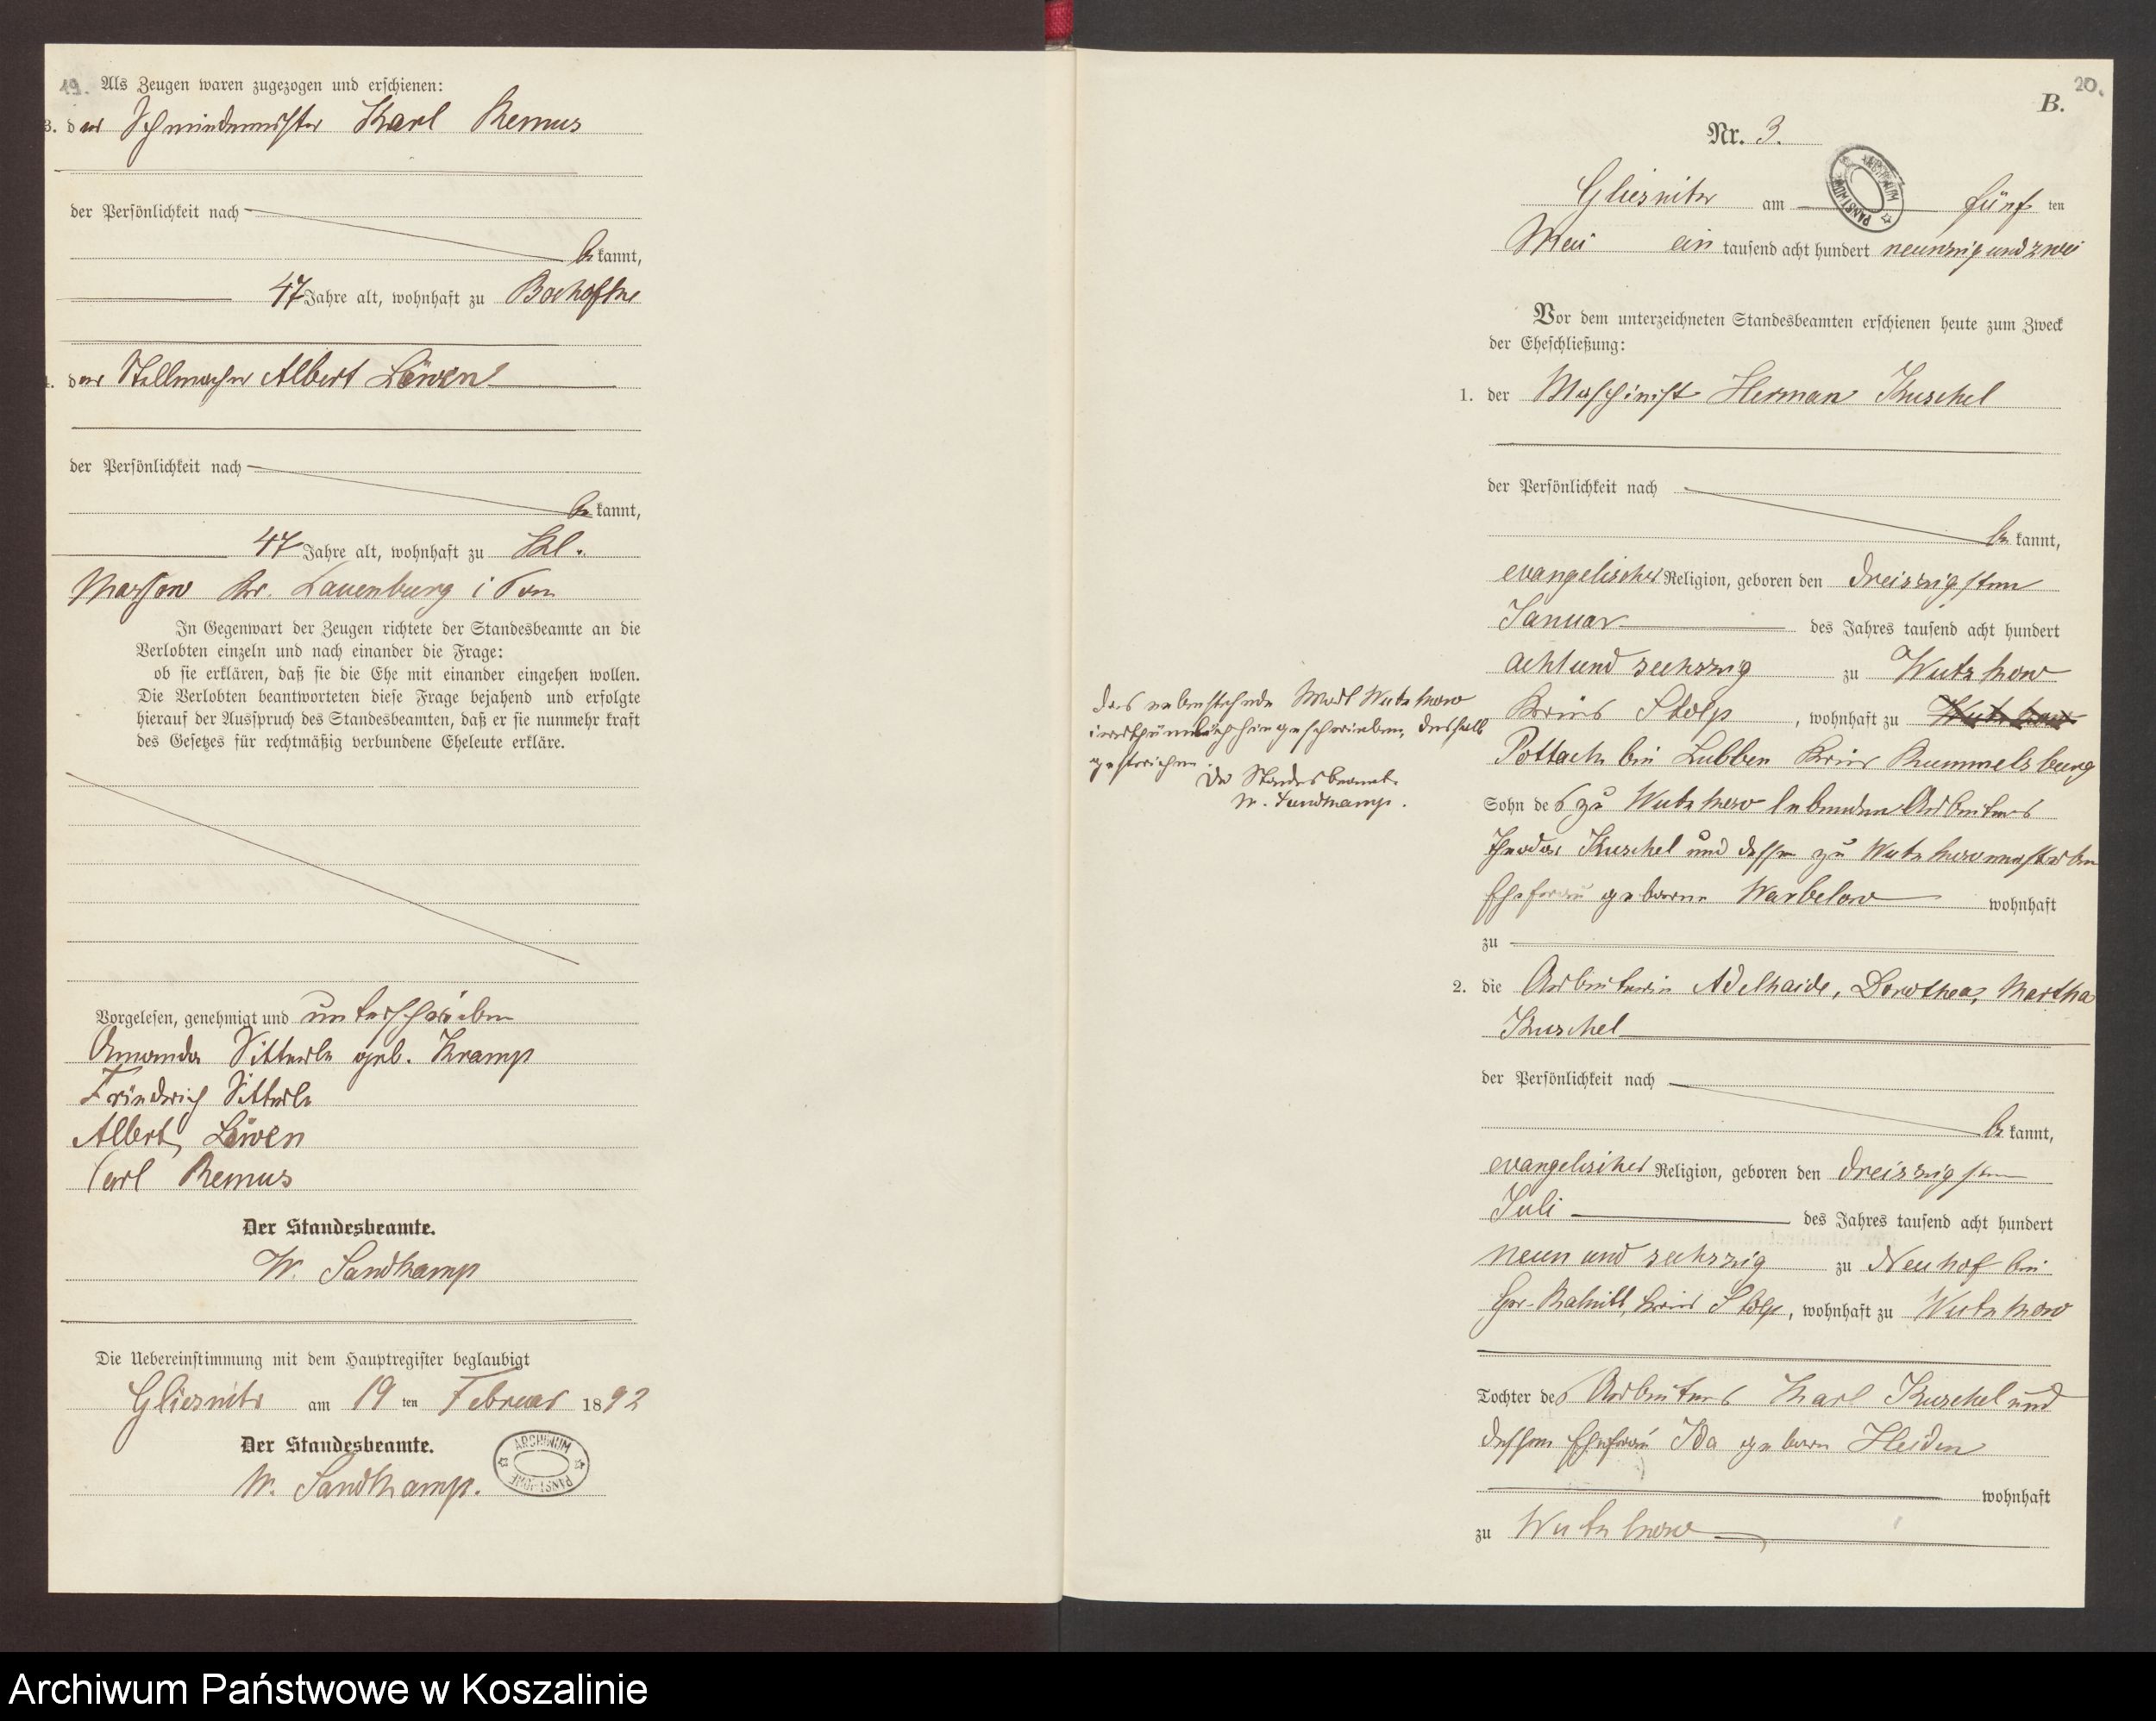 19. Als Zeugen waren zugezogen und erschienen:
3. der Schmiedemeister Karl Remus
der Persönlichkeit nach
be kannt,
47 Jahre alt, wohnhaft zu Bochofke
4. der Stellmacher Albert Löwen
der Persönlichkeit nach
be kannt,
47 Jahre alt, wohnhaft zu Kl.
Massow Kr. Lauenburg i Pom
In Gegenwart der Zeugen richtete der Standesbeamte an die
Verlobten einzeln und nach einander die Frage:
ob sie erklären, daß sie die Ehe mit einander eingehen wollen.
Die Verlobten beantworteten diese Frage bejahend und erfolgte
hierauf der Ausspruch des Standesbeamten, daß er sie nunmehr kraft
des Gesetzes für rechtmäßig verbundene Eheleute erkläre.
Vorgelesen, genehmigt und unterschrieben
Amanda Sitterle geb. Kramp
Friedrich Sitterle
Albert Löwen
Carl Remus
Der Standesbeamte.
W. Sandkamp
Die Uebereinstimmung mit dem Hauptregister beglaubigt
Gliesnitz am 19 ten Februar 1892
Der Standesbeamte.
W. Sandkamp.
ARCHIWUM PAŃSTWOWE
20.
B.
Nr. 3.
ARCHIWUM PAŃSTWOWE
Gliesnitz am fünf ten
Mai ein tausend acht hundert neunzig und zwei
Vor dem unterzeichneten Standesbeamten erschienen heute zum Zweck
der Eheschließung:
1. der Maschinist Herman Kuschel
der Persönlichkeit nach
be kannt,
evangelischer Religion, geboren den dreiszigsten
Januar des Jahres tausend acht hundert
acht und sechszig zu Wutzkow
Kreis Stolp, wohnhaft zu Wutzkow
Pottack bei Lubben Kreis Rummelsburg
das nebenstehende Wort Wutzkow
irrthümlich hingeschrieben, deshalb
gestrichen.
Der Standesbeamte.
W. Sandkamp.
Sohn des zu Wutzkow lebenden Arbeiters
Theodor Kuschel und dessen zu Wutzkow verstorbenen
Ehefrau geborne Warbelow wohnhaft
zu
2. die Arbeiterin Adelhaide, Dorothea, Martha
Kuschel
der Persönlichkeit nach
be kannt,
evangelischer Religion, geboren den dreiszigsten
Juli des Jahres tausend acht hundert
neun und sechszig zu Neuhof bei
Gr. Rakitt, Kreis Stolp, wohnhaft zu Wutzkow
Tochter des Arbeiters Karl Kuschel und
dessen Ehefrau Ida geborn Heiden
wohnhaft
zu Wutzkow
Archiwum Państwowe w Koszalinie